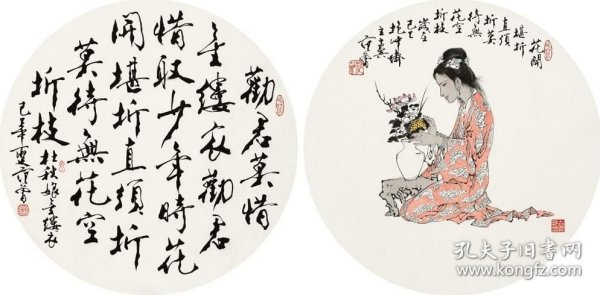 勸君莫惜
金縷衣勸君
惜取少年時花
開堪折直須折
莫待無花空
折枝
杜秋娘金縷衣
范曾
花開
堪折
直須
折莫
待無
花空
折枝
歲在
己巳
抱沖齋
主十翼
范曾
孔夫子旧书网
www.kongfz.com